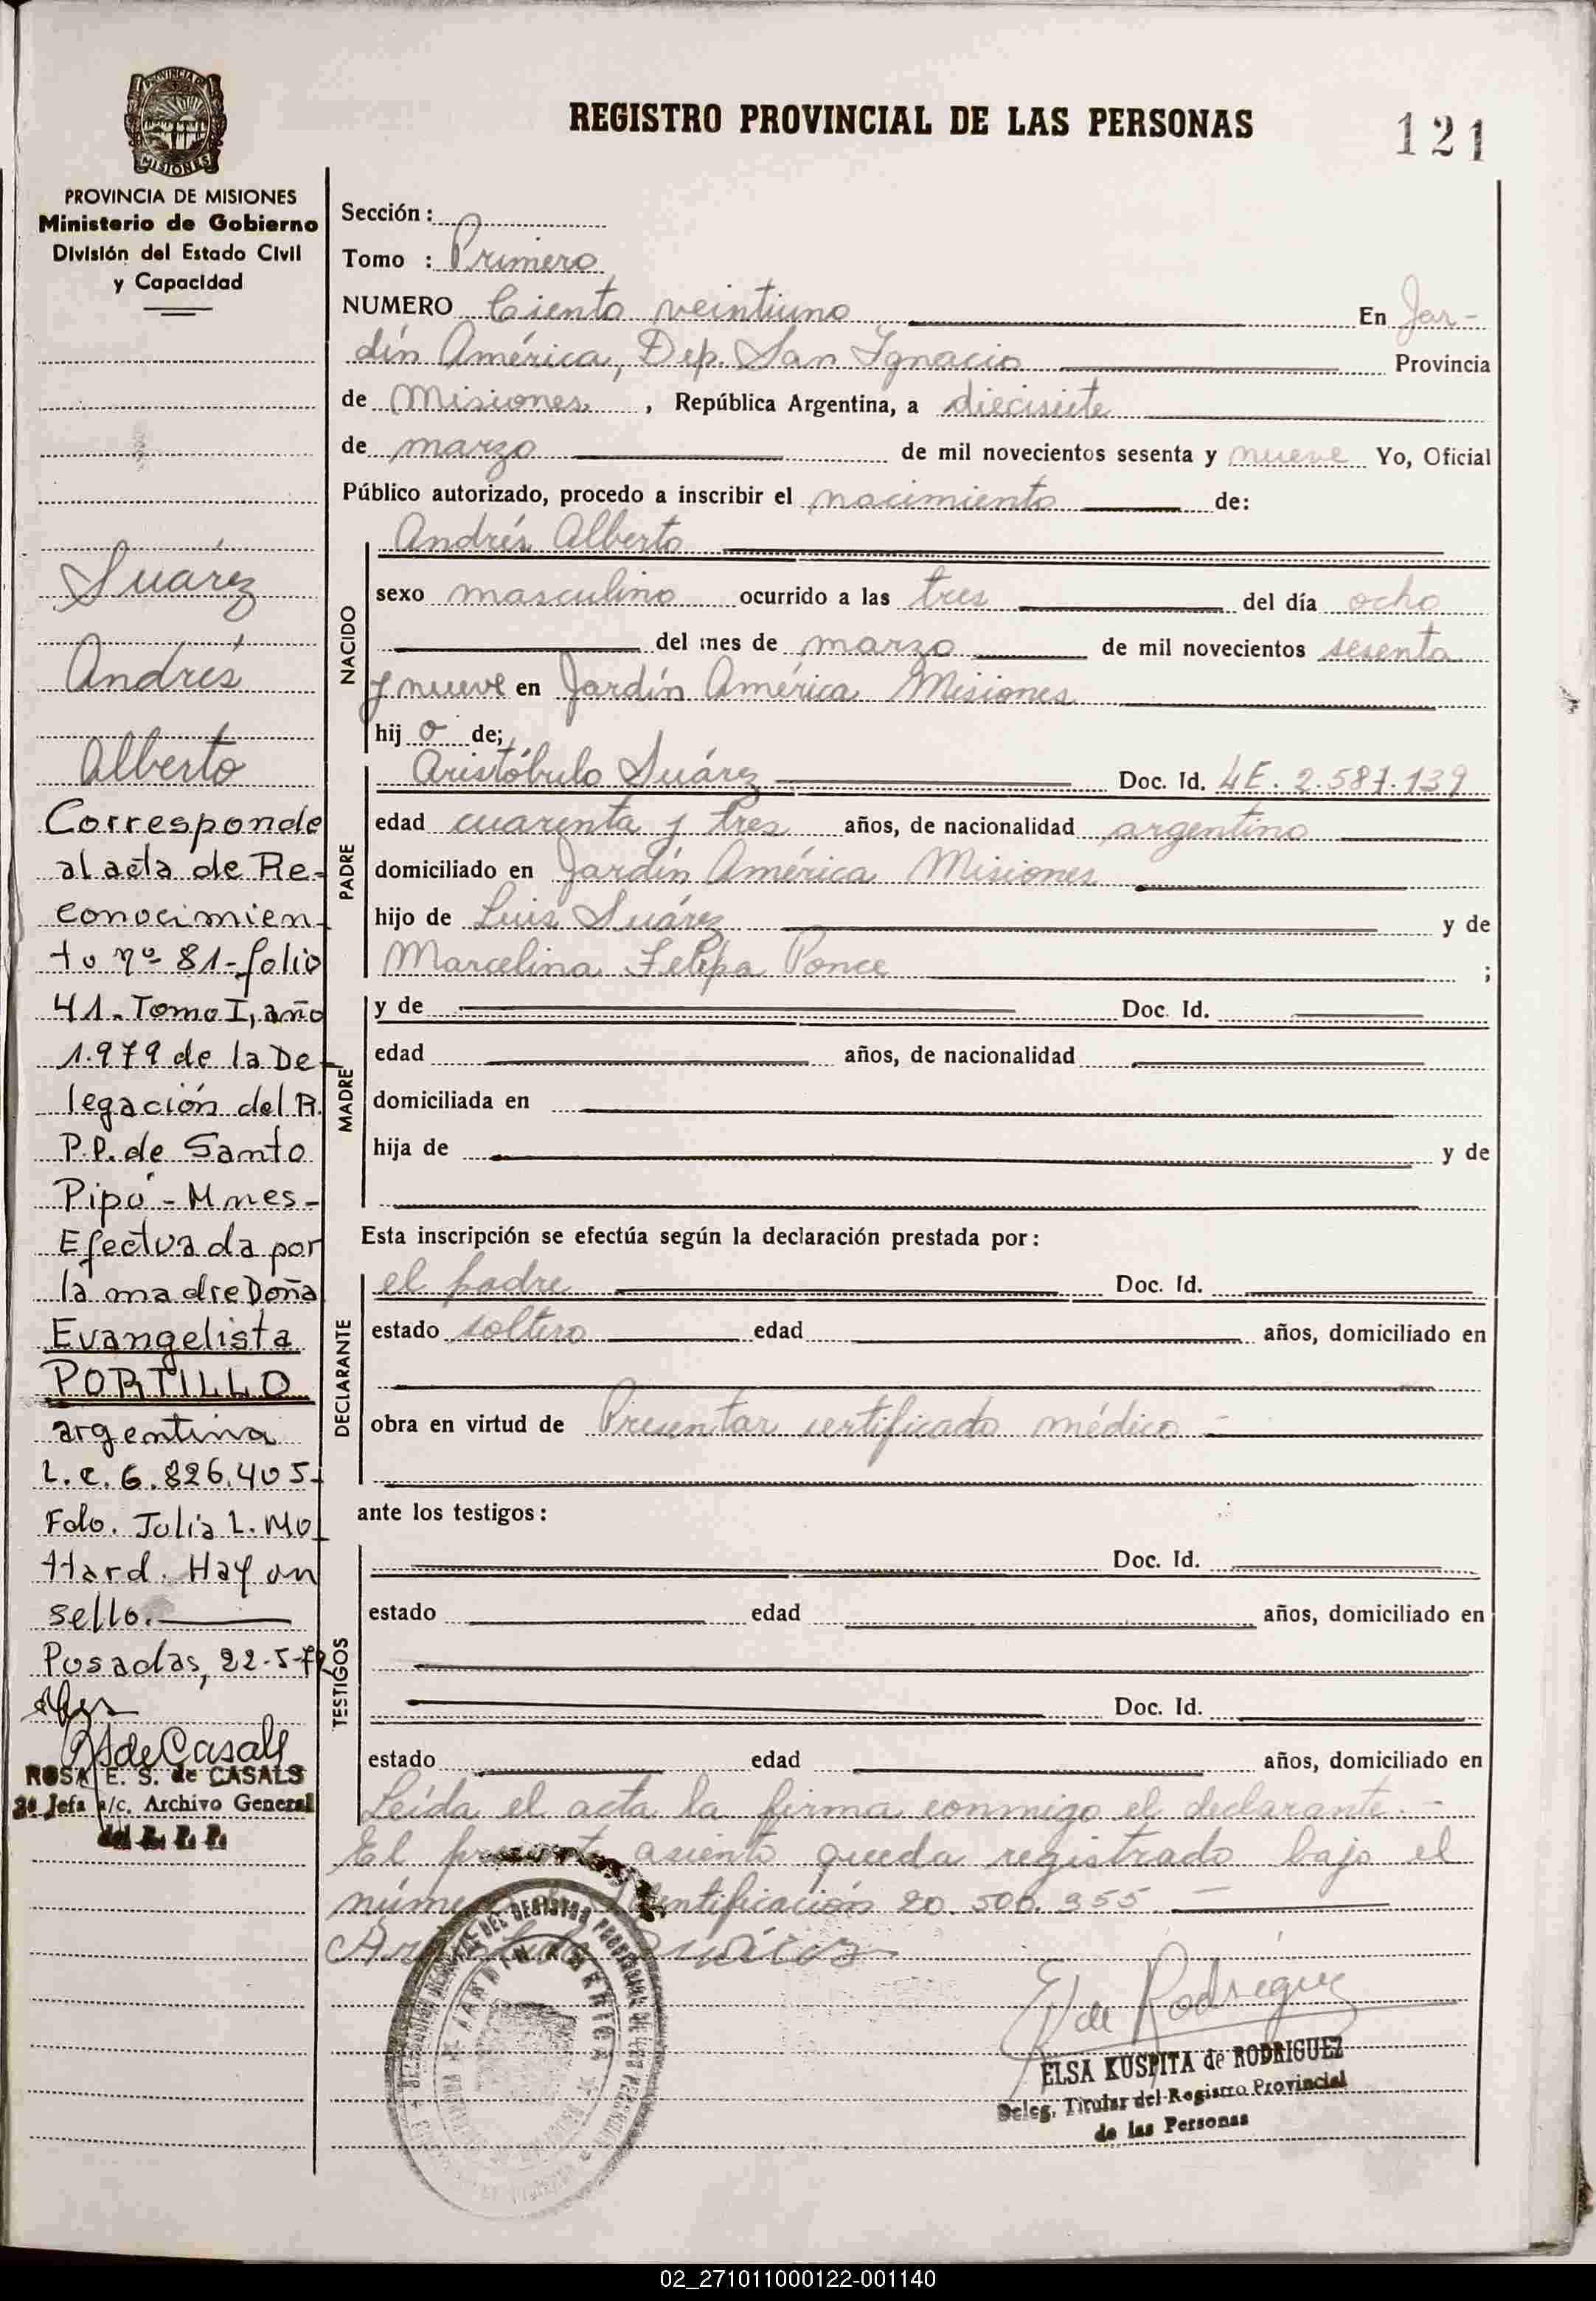 REGISTRO PROVINCIAL DE LAS PERSONAS
121
PROVINCIA DE
MISIONES
PROVINCIA DE MISIONES
Ministerio de Gobierno
División del Estado Civil
y Capacidad
Suárez
Andrés
Alberto
Corresponde
al acta de Re-
conocimien-
to nº 81-folio
41-Tomo I, año
1.979 de la De-
legación del R.
P.P. de Santo
Pipó - Mnes-
Efectuada por
la madre Doña
Evangelista
PORTILLO
argentina
L.C. 6.826.405-
Fdo. Julia L. Mo-
ttard. Hay un
sello.
Posadas, 22-5-79
RS de Casals
ROSA E. S. de CASALS
2ª Jefa a/c. Archivo General
del R. P. P.
Sección :
Tomo : Primero
NUMERO Ciento veintiuno En Jar-
dín América, Dep. San Ignacio Provincia
de Misiones , República Argentina, a diecisiete
de marzo de mil novecientos sesenta y nueve Yo, Oficial
Público autorizado, procedo a inscribir el nacimiento de:
NACIDO
Andrés Alberto
sexo masculino ocurrido a las tres del día ocho
del mes de marzo de mil novecientos sesenta
y nueve en Jardín América Misiones
hij o de;
PADRE
Aristóbulo Suárez Doc. Id. LE. 2.587.139
edad cuarenta y tres años, de nacionalidad argentino
domiciliado en Jardín América Misiones
hijo de Luis Suárez y de
Marcelina Felipa Ponce ;
MADRE
y de Doc. Id.
edad años, de nacionalidad
domiciliada en
hija de y de
Esta inscripción se efectúa según la declaración prestada por :
DECLARANTE
el padre Doc. Id.
estado soltero edad años, domiciliado en
obra en virtud de Presentar certificado médico -
ante los testigos :
TESTIGOS
Doc. Id.
estado edad años, domiciliado en
Doc. Id.
estado edad años, domiciliado en
Leída el acta la firma conmigo el declarante. -
El presente asiento queda registrado bajo el
número de identificación 20.500.955
Aristóbulo Suárez
JARDIN AMERICA
E K de Rodriguez
ELSA KUSPITA de RODRIGUEZ
Deleg. Titular del Registro Provincial
de las Personas
02_271011000122-001140